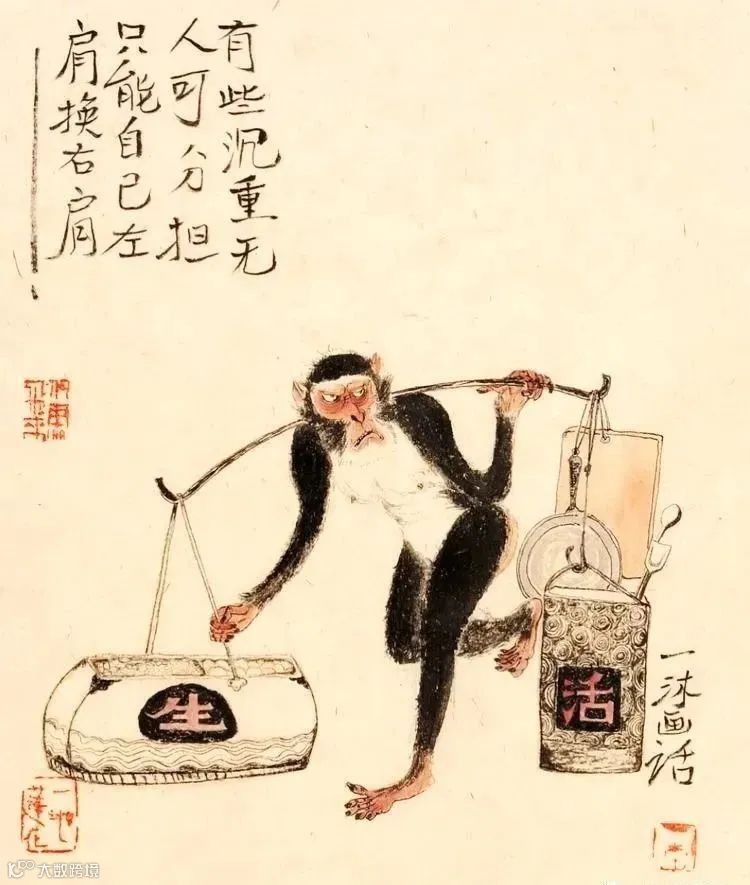 有些沉重无
人可分担
只能自已左
肩换右肩
生
活
一沐画话
大数跨境